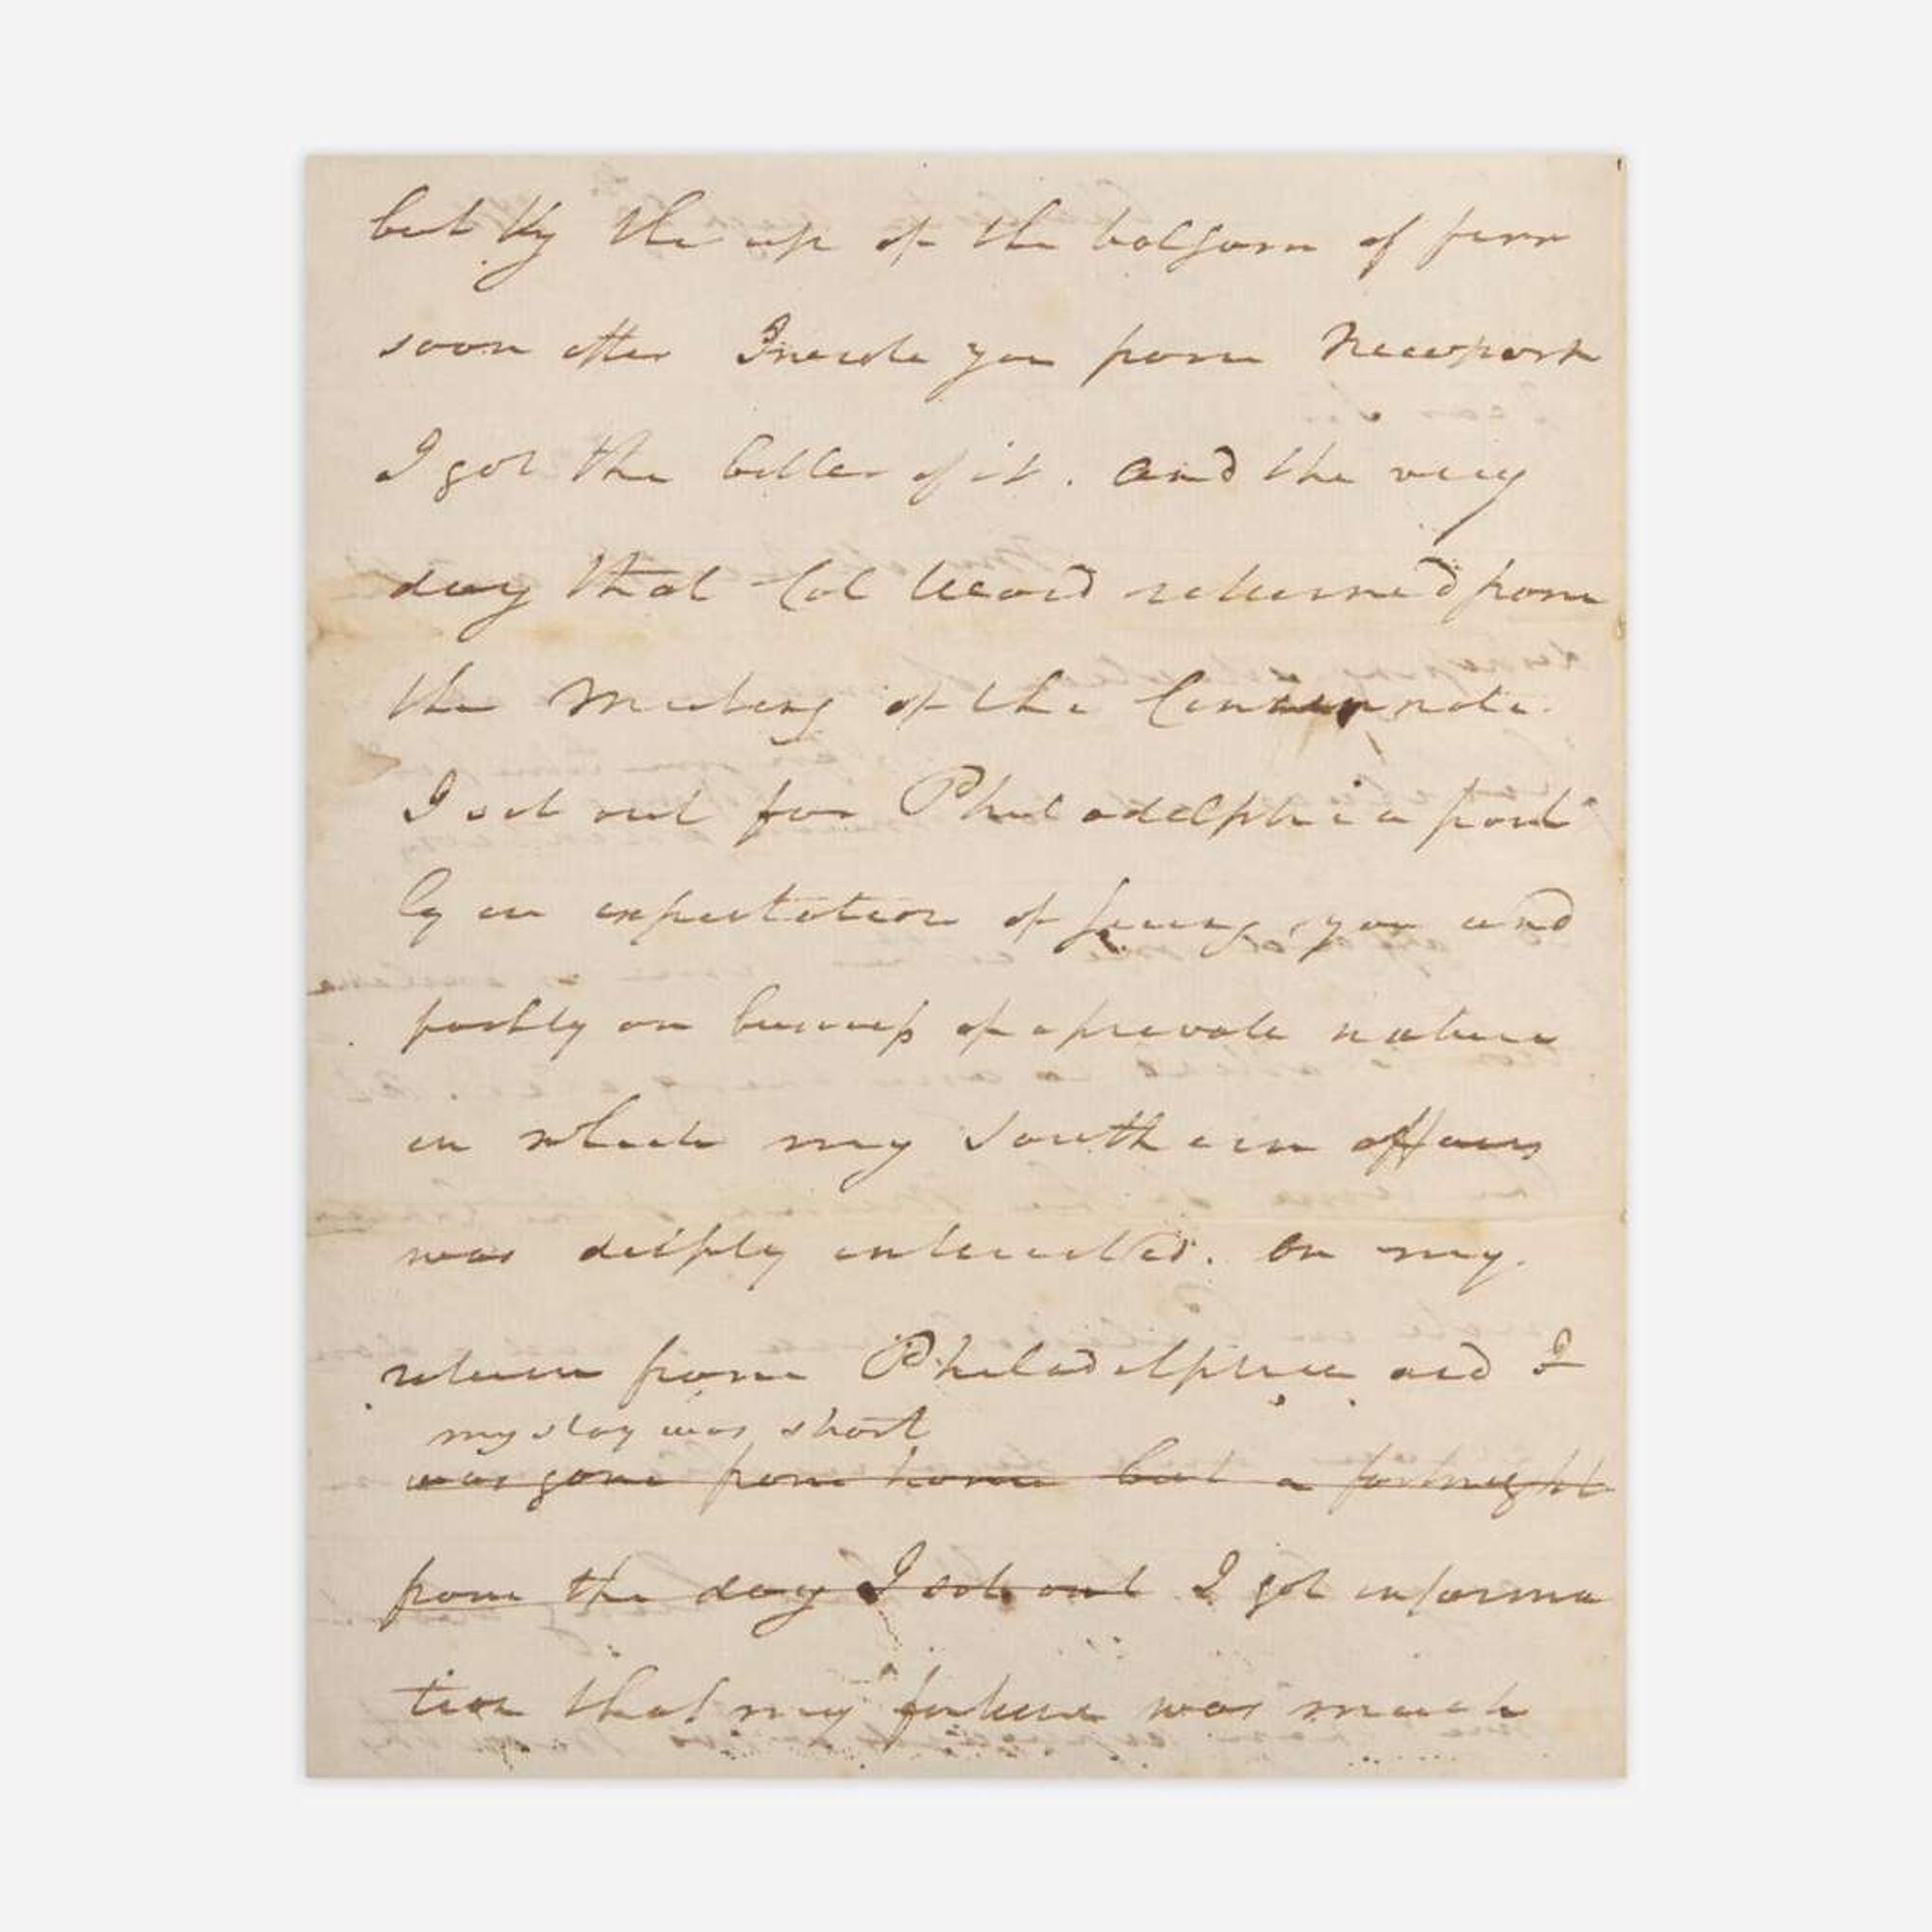 but by the use of the balsam of firr
soon after I wrote you from Newport
I got the better of it. and the very
day that Col Ward returned from
the Meeting of the
I set out for Philadelphia part
ly in expectation of seeing you and
partly on business of a private nature
in which my Southern affairs
was deeply interested. On my
return from Philadelphia and I
my stay was short
was gone from home but a fortnight
from the day I set out I got informa
tion that my future was much